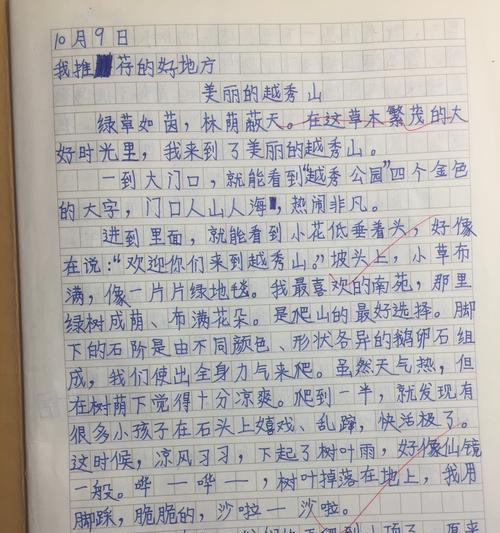 10月9日
我推荐的好地方
美丽的越秀山
绿草如茵，林荫蔽天。在这草木繁茂的大
好时光里，我来到了美丽的越秀山。
一到大门口，就能看到“越秀公园”四个金色
的大字，门口人山人海，热闹非凡。
进到里面，就能看到小花低垂着头，好像
在说：“欢迎你们来到越秀山。”坡头上，小草布
满，像一片片绿地毯。我最喜欢的南苑，那里
绿树成荫、布满花朵。是爬山的最好选择。脚
下的石阶是由不同颜色、形状各异的鹅卵石组
成，我们使出全身力气来爬。虽然天气热，但
在树荫下觉得十分凉爽。爬到一半，就发现有
很多小孩子在石头上嬉戏、乱蹿，快活极了。
这时候，凉风习习，下起了树叶雨，好像仙镜
一般。哗——哗——，树叶掉落在地上，我用
脚踩，脆脆的，沙啦—沙啦。